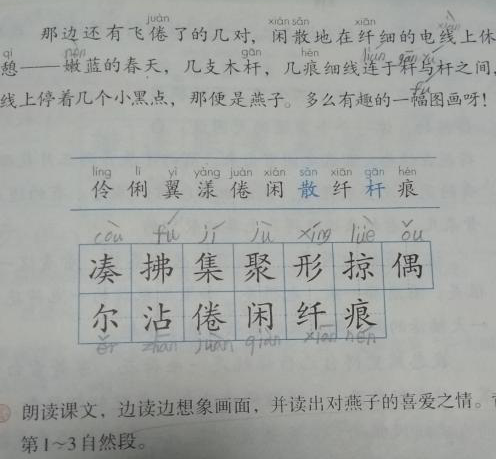 juàn xián sǎn xiān
那边还有飞倦了的几对，闲散地在纤细的电线上休
qì nèn gān hén
憩——嫩蓝的春天，几支木杆，几痕细线连于杆与杆之间，
线上停着几个小黑点，那便是燕子。多么有趣的一幅图画呀！
líng lì yì yàng juàn xián sǎn xiān gān hén
伶 俐 翼 漾 倦 闲 散 纤 杆 痕
còu fú jí jù xíng lüè ǒu
凑 拂 集 聚 形 掠 偶
尔 沾 倦 闲 纤 痕
ěr zhān juàn xiān hén
朗读课文，边读边想象画面，并读出对燕子的喜爱之情。
第1~3自然段。